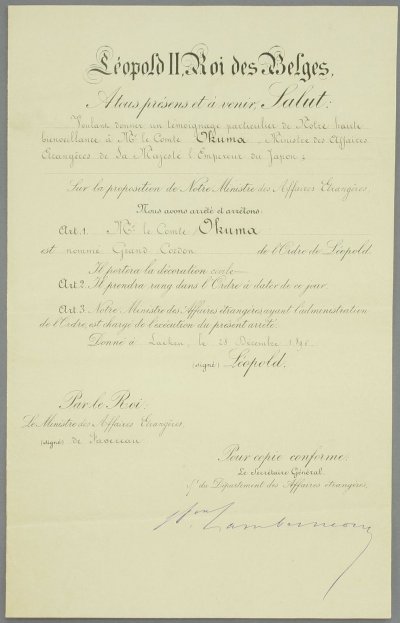 Léopold II, Roi des Belges,
A tous présens et à venir, Salut:
Voulant donner un témoignage particulier de Notre haute
bienveillance à Mr. le Comte Okuma, Ministre des Affaires
Etrangères de Sa Majesté l'Empereur du Japon;
Sur la proposition de Notre Ministre des Affaires Etrangères,
Nous avons arrêté et arrêtons:
Art. 1. Mr. le Comte Okuma
est nommé Grand Cordon de l'Ordre de Léopold.
Il portera la décoration civile
Art. 2. Il prendra rang dans l'Ordre à dater de ce jour.
Art. 3. Notre Ministre des Affaires étrangères ayant l'administration
de l'Ordre, est chargé de l'exécution du présent arrêté.
Donné à Laeken, le 28 Décembre
(signé) Léopold.
Par le Roi:
Le Ministre des Affaires Etrangères,
(signé) de Favereau
Pour copie conforme:
Le Secrétaire Général
du Département des Affaires étrangères,